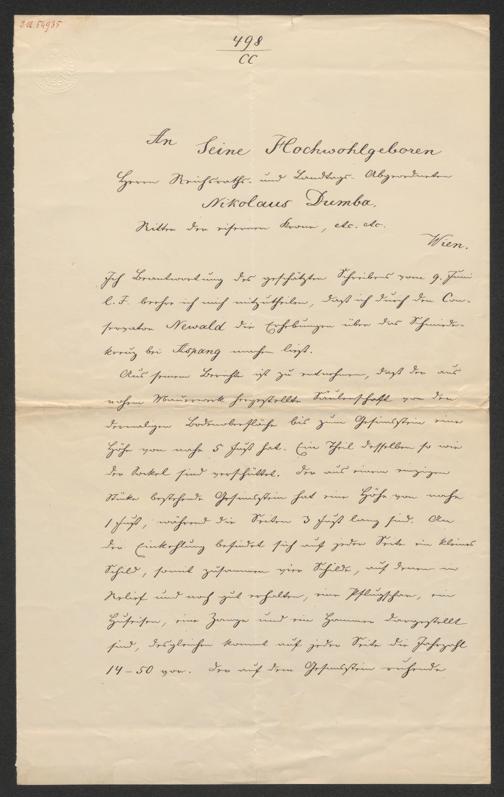 I.N. 54935
498
CC
An
Seine Hochwohlgeboren
Herrn Reichsraths- und Landtags-Abgeordneten
Nikolaus Dumba,
Ritter der eisernen Krone, etc. etc.
Wien.
In Beantwortung des geschätzten Schreibens vom 9. Juni
l. J. beehre ich mich mitzutheilen, daß ich durch den Con-
servator Newald die Erhebungen über das Schmiede-
kreuz bei Aspang machen ließ.
Aus seinem Berichte ist zu entnehmen, daß der aus
rohem Mauerwerk hergestellte Säulenschaft von der
dermaligen Bodenoberfläche bis zum Gesimsstein eine
Höhe von nahe 5 Fuß hat. Ein Theil desselben so wie
der Sockel sind verschüttet. Der aus einem einzigen
Stüke bestehende Gesimsstein hat eine Höhe von nahe
1 Fuß, während die Seiten 3 Fuß lang sind. An
der Einkehlung befindet sich auf jeder Seite ein kleines
Schild, somit zusammen vier Schilde, auf denen in
Relief und noch gut erhalten, eine Pflugschar, ein
Hufeisen, eine Zange und ein Hammer dargestellt
sind, desgleichen kommt auf jeder Seite die Jahrzahl
14-50 vor. Der auf dem Gesimsstein ruhende